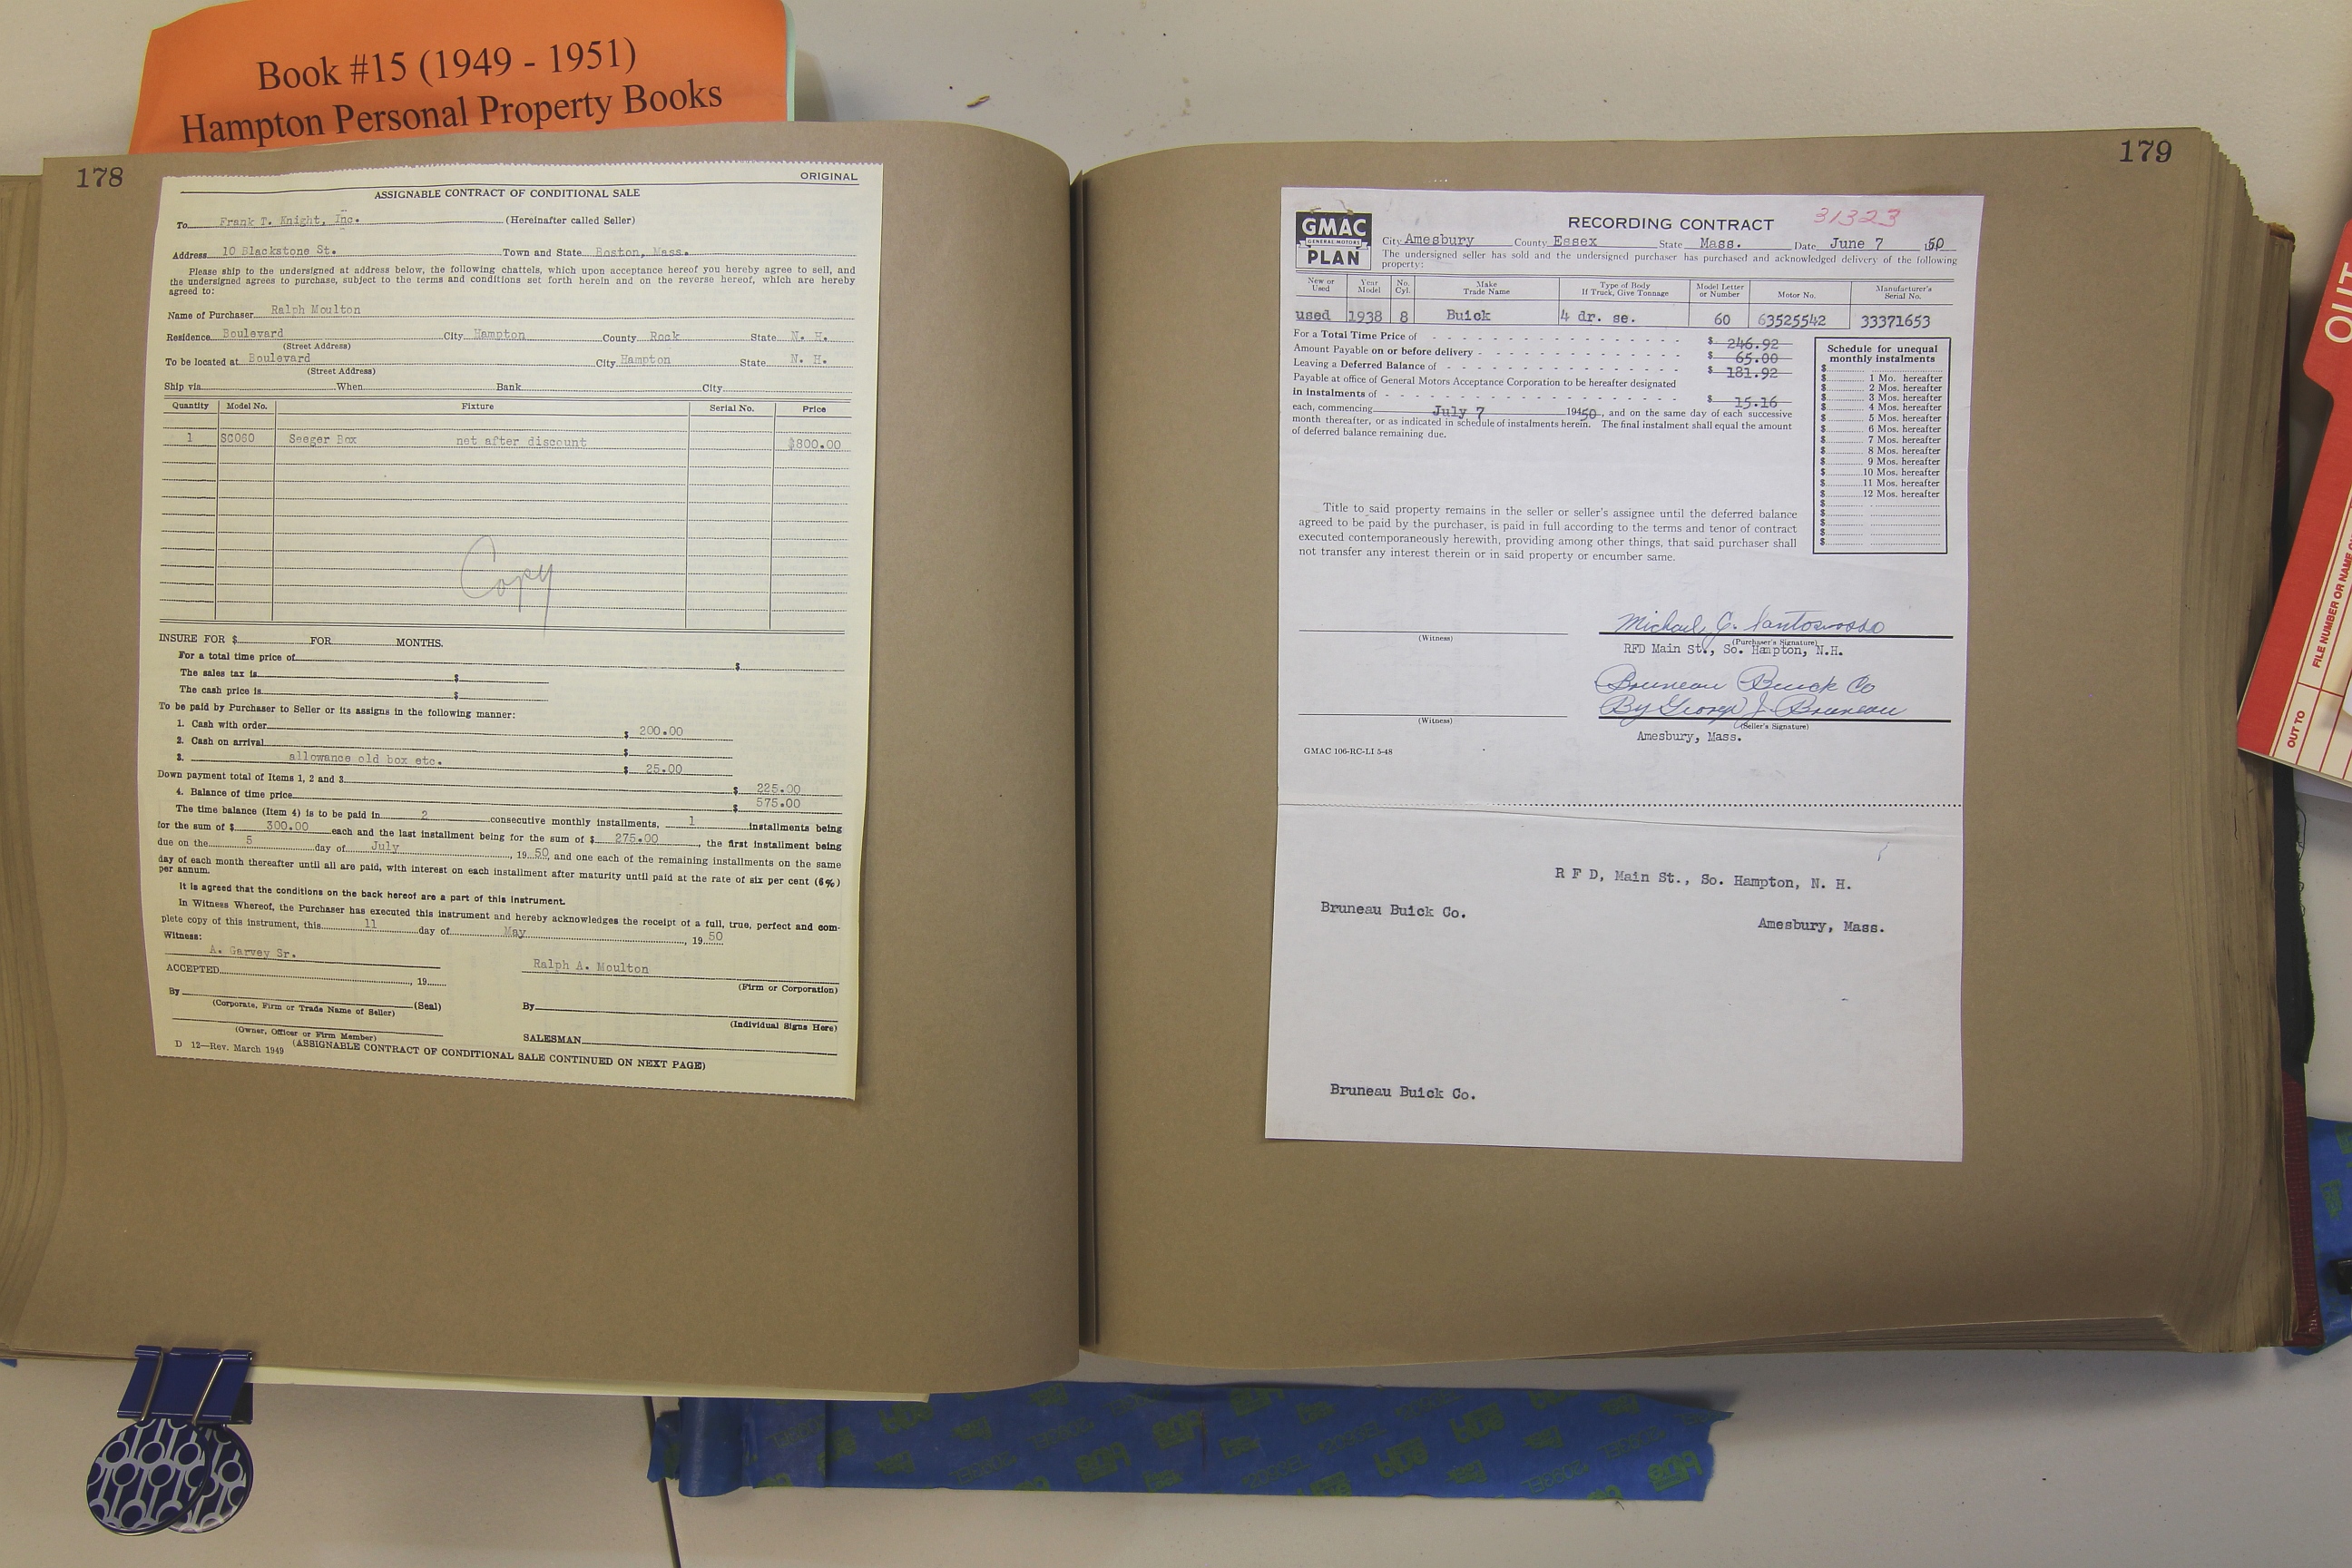 Book #15 (1949 - 1951)
Hampton Personal Property Books
178
ORIGINAL
ASSIGNABLE CONTRACT OF CONDITIONAL SALE
To Frank T. Knight, Inc. (Hereinafter called Seller)
Address 10 Blackstone St. Town and State Boston, Mass.
Please ship to the undersigned at address below, the following chattels, which upon acceptance hereof you hereby agree to sell, and
the undersigned agrees to purchase, subject to the terms and conditions set forth herein and on the reverse hereof, which are hereby
agreed to:
Name of Purchaser Ralph Moulton
Residence Boulevard City Hampton County Rock State N. H.
(Street Address)
To be located at Boulevard City Hampton State N. H.
(Street Address)
Ship via When Bank City
Quantity Model No. Fixture Serial No. Price
1 SC060 Seeger Box net after discount $800.00
Copy
INSURE FOR $ FOR MONTHS.
For a total time price of $
The sales tax is $
The cash price is $
To be paid by Purchaser to Seller or its assigns in the following manner:
1. Cash with order $ 200.00
2. Cash on arrival $
3. allowance old box etc. $ 25.00
Down payment total of Items 1, 2 and 3 $ 225.00
4. Balance of time price $ 575.00
The time balance (Item 4) is to be paid in 2 consecutive monthly installments, 1 installments being
for the sum of $ 300.00 each and the last installment being for the sum of $ 275.00, the first installment being
due on the 5 day of July, 19 50, and one each of the remaining installments on the same
day of each month thereafter until all are paid, with interest on each installment after maturity until paid at the rate of six per cent (6%)
per annum.
It is agreed that the conditions on the back hereof are a part of this instrument.
In Witness Whereof, the Purchaser has executed this instrument and hereby acknowledges the receipt of a full, true, perfect and com-
plete copy of this instrument, this 11 day of May, 19 50
Witness:
A. Garvey Sr.
Ralph A. Moulton
ACCEPTED, 19
(Firm or Corporation)
By (Seal)
(Corporate, Firm or Trade Name of Seller)
By
(Individual Signs Here)
(Owner, Officer or Firm Member)
SALESMAN
D 12—Rev. March 1949 (ASSIGNABLE CONTRACT OF CONDITIONAL SALE CONTINUED ON NEXT PAGE)
179
GMAC
GENERAL MOTORS
PLAN
RECORDING CONTRACT
31323
City Amesbury County Essex State Mass. Date June 7 1950
The undersigned seller has sold and the undersigned purchaser has purchased and acknowledged delivery of the following
property:
New or Used Year Model No. Cyl. Make Trade Name Type of Body If Truck, Give Tonnage Model Letter or Number Motor No. Manufacturer's Serial No.
used 1938 8 Buick 4 dr. se. 60 63525542 33371653
For a Total Time Price of $ 246.92
Amount Payable on or before delivery $ 65.00
Leaving a Deferred Balance of $ 181.92
Payable at office of General Motors Acceptance Corporation to be hereafter designated
in instalments of $ 15.16
each, commencing July 7 19450, and on the same day of each successive
month thereafter, or as indicated in schedule of instalments herein. The final instalment shall equal the amount
of deferred balance remaining due.
Schedule for unequal
monthly instalments
$
$ 1 Mo. hereafter
$ 2 Mos. hereafter
$ 3 Mos. hereafter
$ 4 Mos. hereafter
$ 5 Mos. hereafter
$ 6 Mos. hereafter
$ 7 Mos. hereafter
$ 8 Mos. hereafter
$ 9 Mos. hereafter
$ 10 Mos. hereafter
$ 11 Mos. hereafter
$ 12 Mos. hereafter
$
$
$
$
$
Title to said property remains in the seller or seller's assignee until the deferred balance
agreed to be paid by the purchaser, is paid in full according to the terms and tenor of contract
executed contemporaneously herewith, providing among other things, that said purchaser shall
not transfer any interest therein or in said property or encumber same.
Michael C. Santosuosso
(Witness) (Purchaser's Signature)
RFD Main St., So. Hampton, N.H.
Bruneau Buick Co
By George J. Bruneau
(Witness) (Seller's Signature)
Amesbury, Mass.
GMAC 106-RC-LI 5-48
R F D, Main St., So. Hampton, N. H.
Bruneau Buick Co.
Amesbury, Mass.
Bruneau Buick Co.
OUT
FILE NUMBER OR NAME
OUT TO